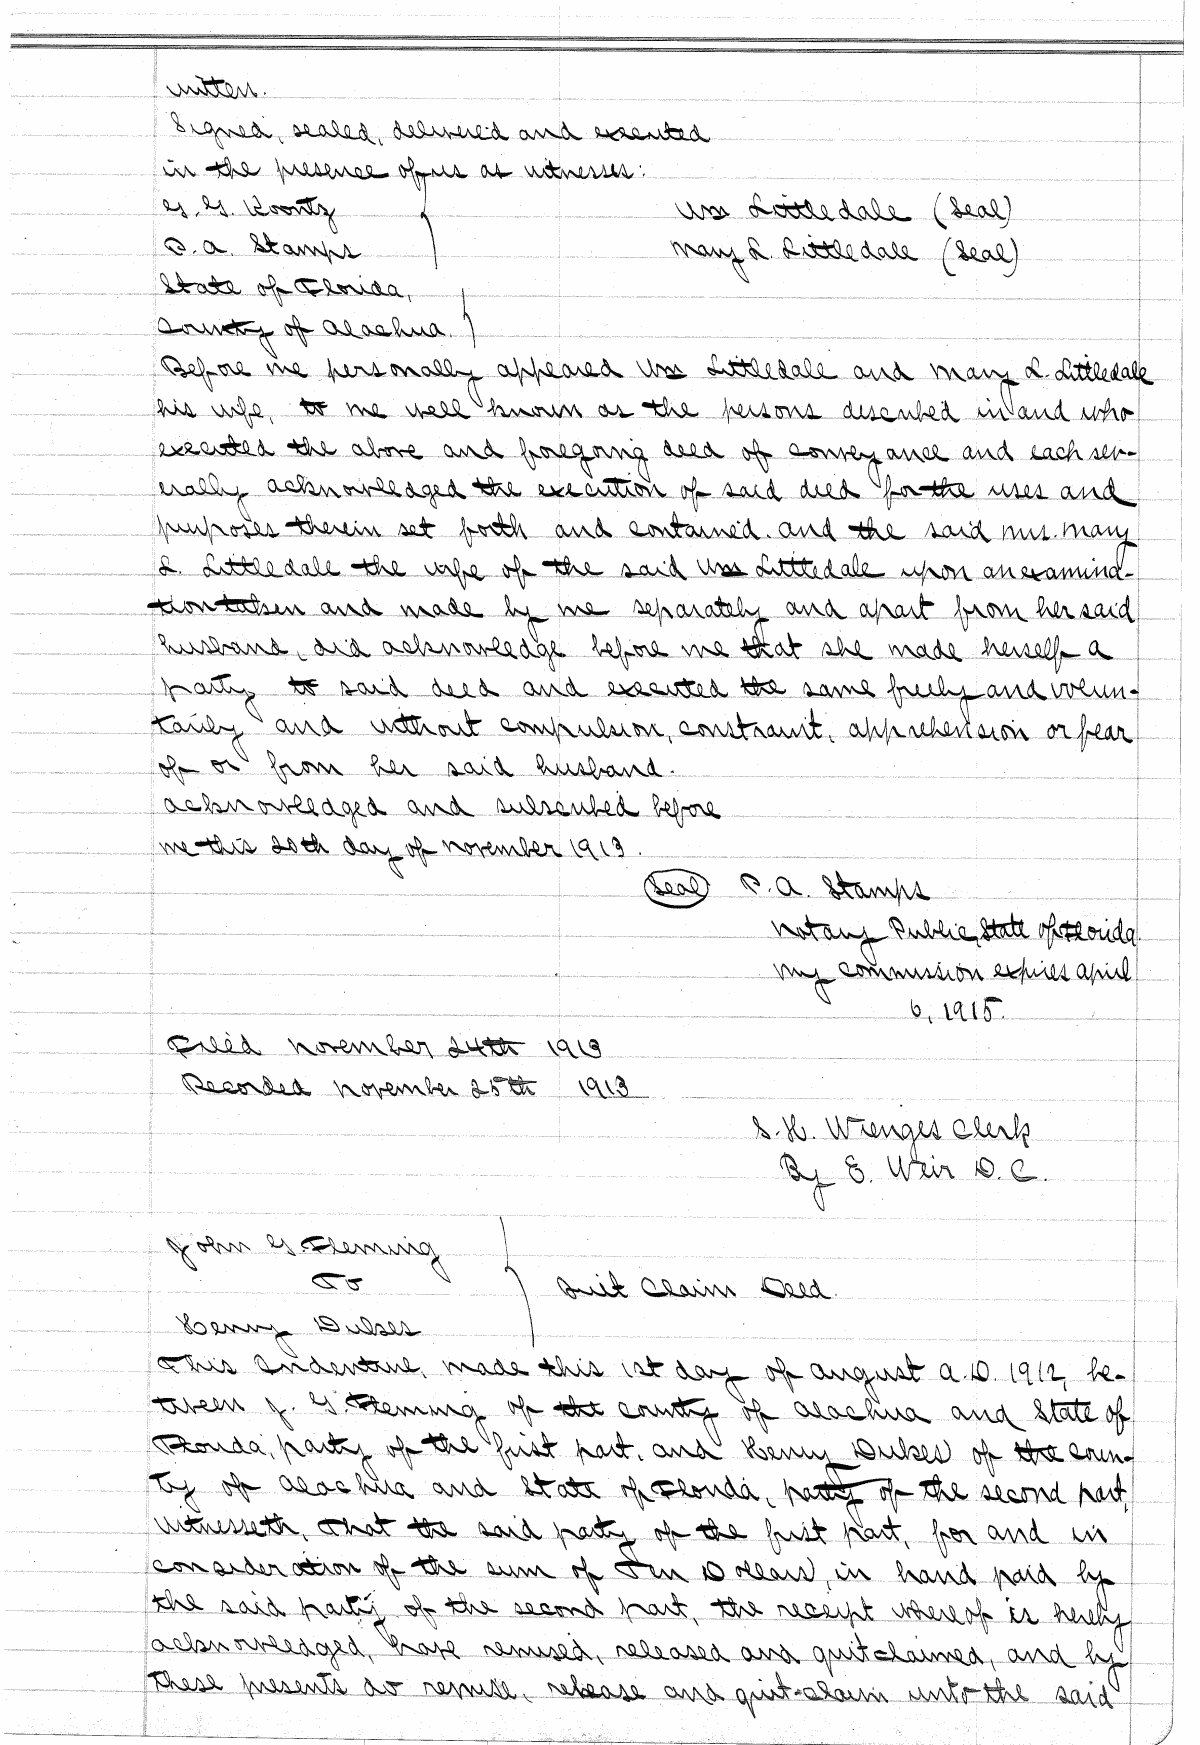 written.
Signed, sealed, delivered and executed
in the presence of us as witnesses:
G. G. Koontz
Wm Littledale (Seal)
P. A. Stamps
Mary L. Littledale (Seal)
State of Florida,
County of Alachua.
Before me personally appeared Wm Littledale and Mary L. Littledale
his wife, to me well known as the persons described in and who
executed the above and foregoing deed of conveyance and each sev-
erally acknowledged the execution of said deed for the uses and
purposes therein set forth and contained. and the said Mrs. Mary
L. Littledale the wife of the said Wm Littledale upon an examina-
tion taken and made by me separately and apart from her said
husband, did acknowledge before me that she made herself a
party to said deed and executed the same freely and volun-
tarily and without compulsion, constraint, apprehension or fear
of or from her said husband.
Acknowledged and subscribed before
me this 20th day of November 1913.
(Seal) P. A. Stamps
Notary Public, State of Florida
My commission expires April
6, 1915.
Filed November 24th 1913
Recorded November 25th 1913
S. H. Wienges Clerk
By E. Weir D. C.
John G. Fleming
To
Quit Claim Deed.
Henry Dukes
This Indenture, made this 1st day of August A. D. 1912, be-
tween J. G. Fleming of the county of Alachua and State of
Florida, party of the first part, and Henry Dukes of the coun-
ty of Alachua and State of Florida, party of the second part,
witnesseth, That the said party of the first part, for and in
consideration of the sum of Ten Dollars, in hand paid by
the said party of the second part, the receipt whereof is hereby
acknowledged, have remised, released and quitclaimed, and by
these presents do remise, release and quit-claim unto the said